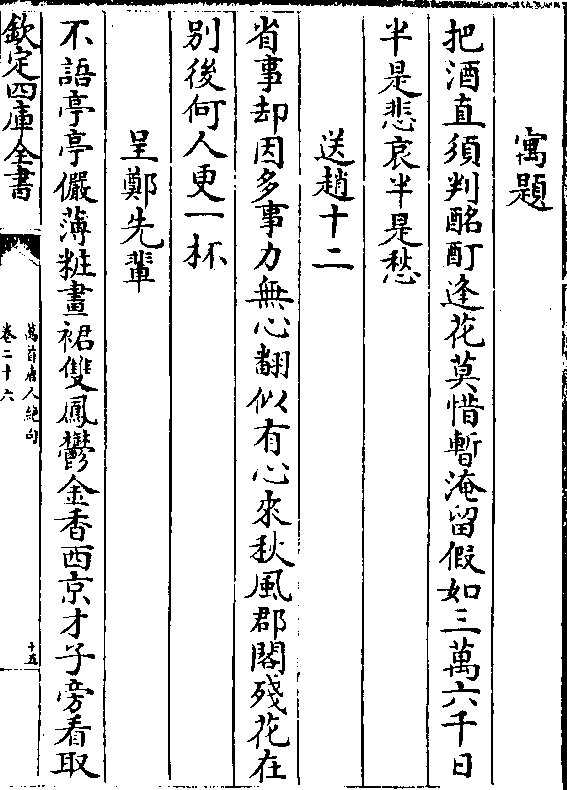 寓題
把酒直須判酩酊逢花莫惜暫淹留假如三萬六千日
半是悲哀半是愁
送趙十二
省事却因多事力無心翻似有心來秋風郡閣殘花在
別後何人更一杯
呈鄭先輩
不語亭亭儼薄粧畫裙雙鳳鬱金香西京才子旁看取
欽定四庫全書
萬首唐人絶句
卷二十六
十五